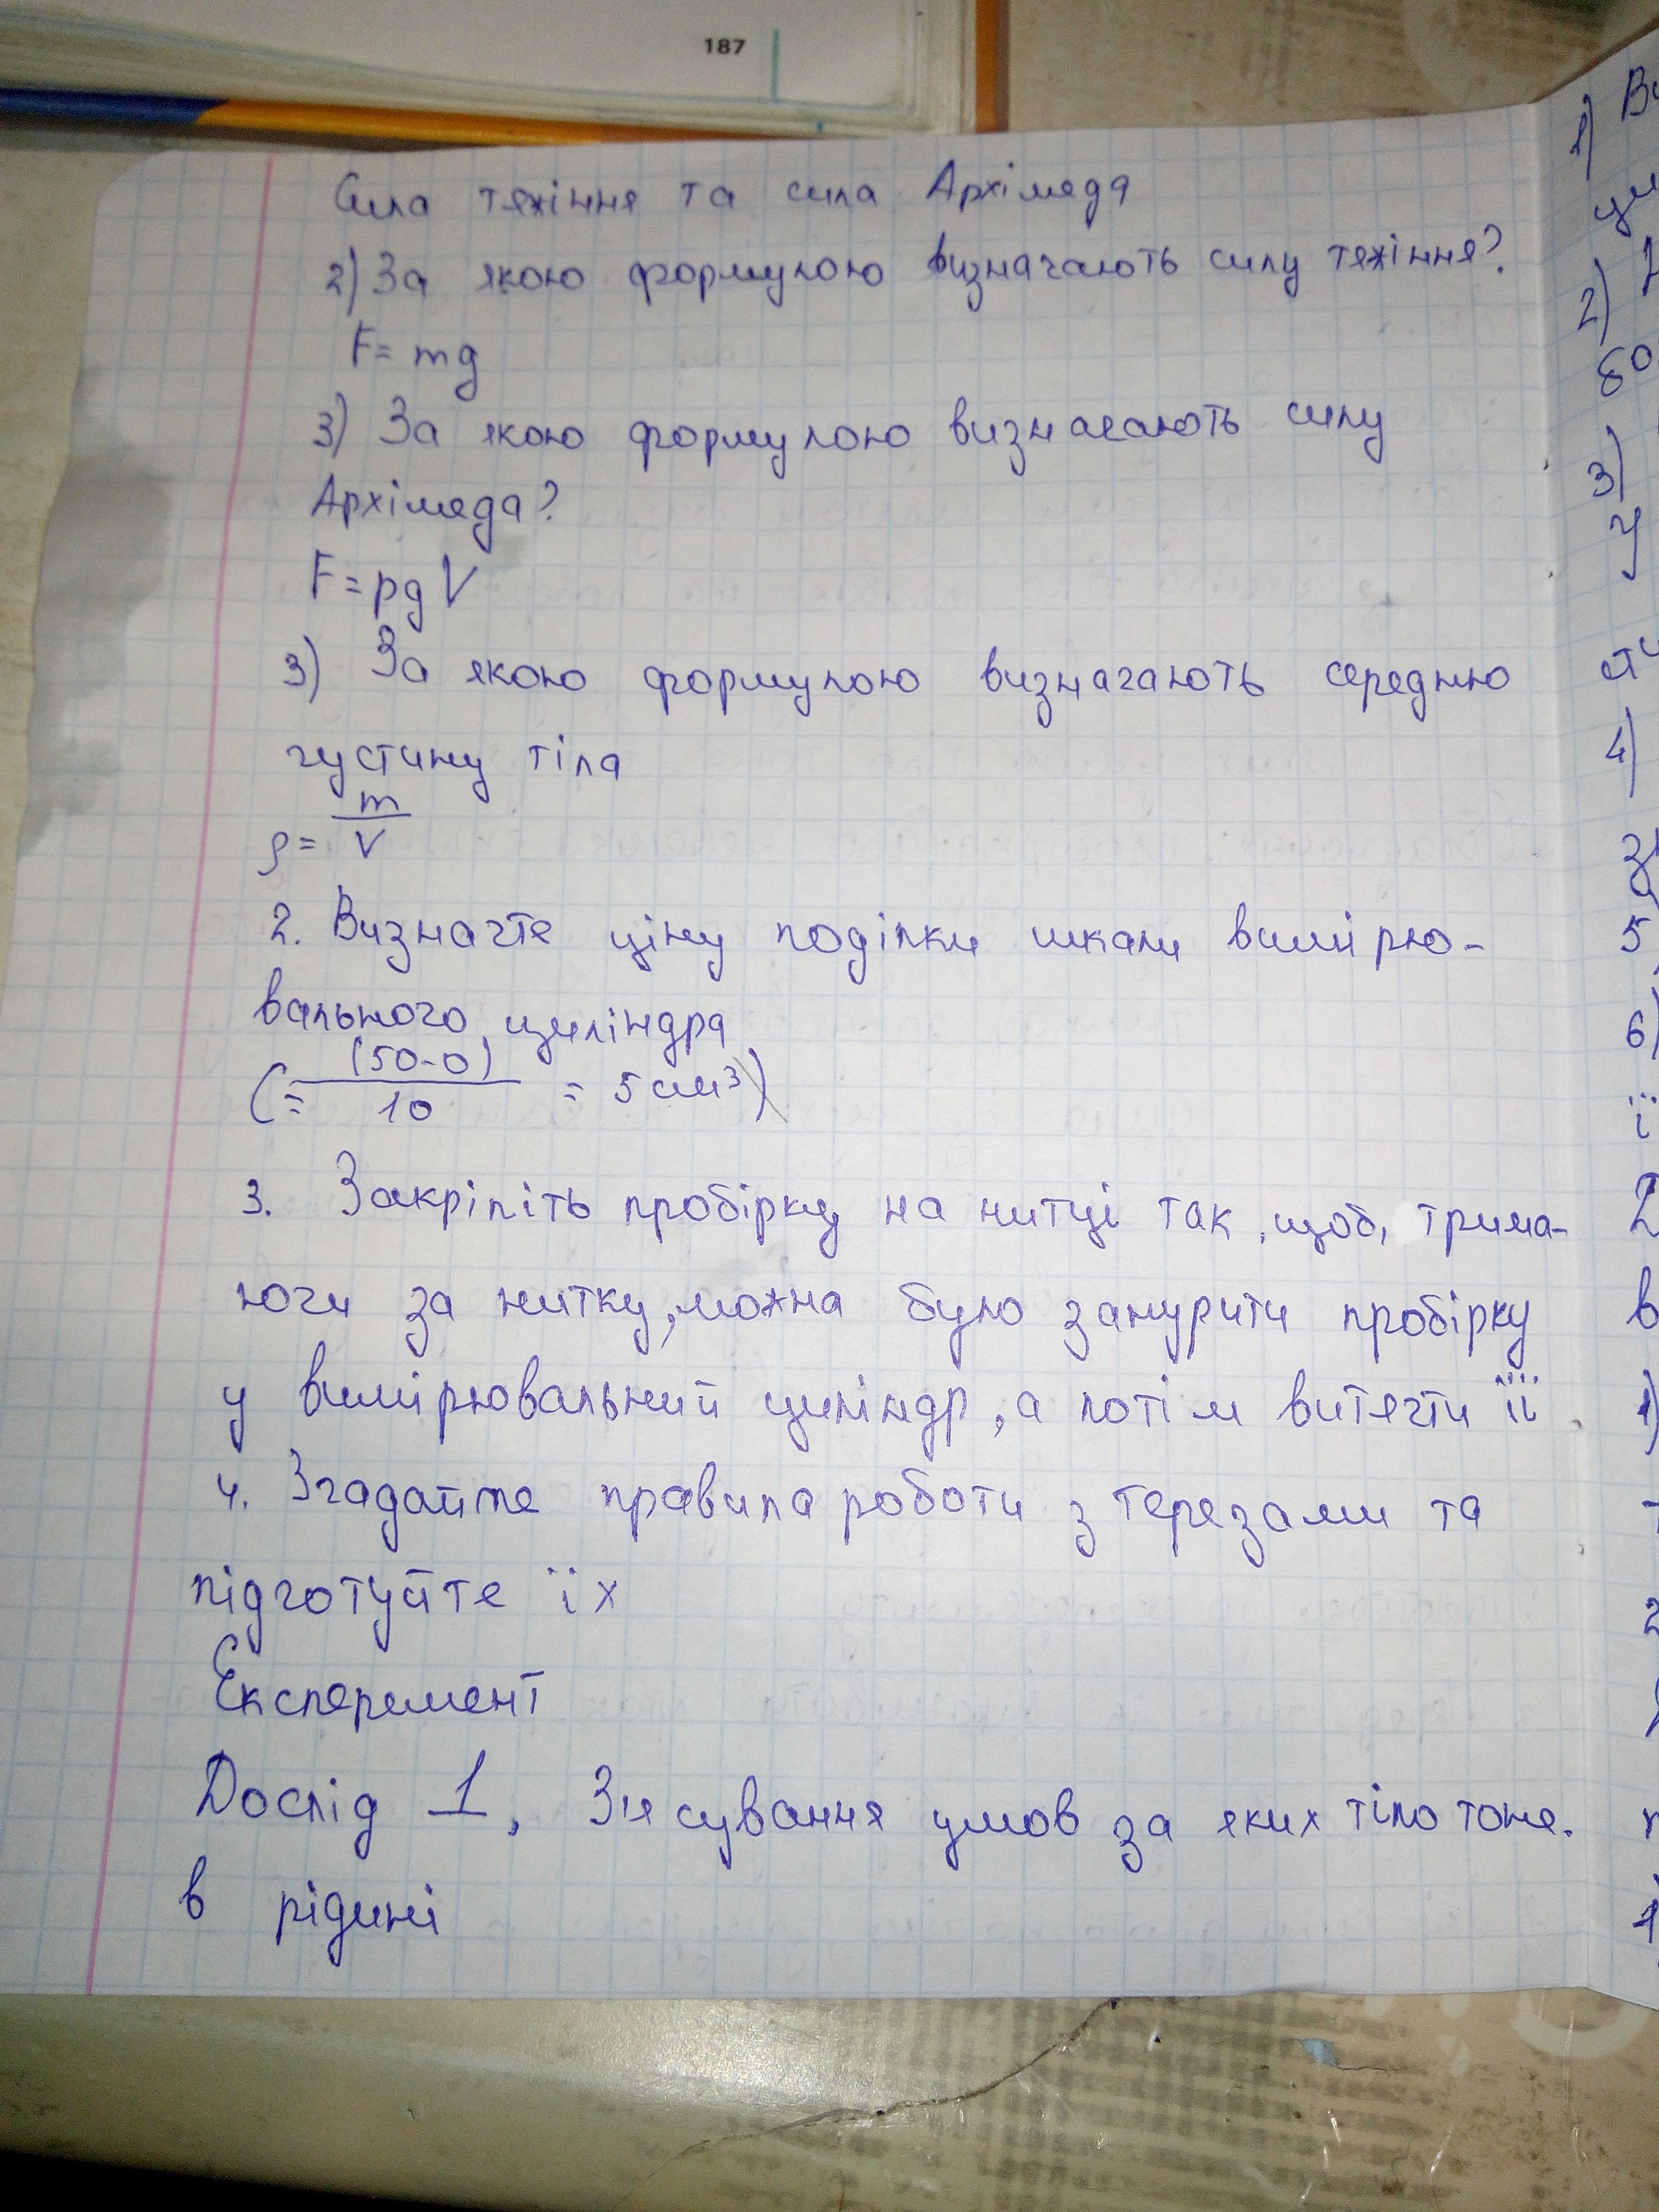 187
Сила тяжіння та сила Архімеда
2) За якою формулою визначають силу тяжіння?
F = mg
3) За якою формулою визначають силу
Архімеда?
F = pgV
3) За якою формулою визначають середню
густину тіла
ρ = m/V
2. Визначте ціну поділки шкали вимірю-
вального циліндра
(= (50-0)/10 = 5 см³)
3. Закріпіть пробірку на нитці так, щоб, трима-
ючи за нитку, можна було занурити пробірку
у вимірювальний циліндр, а потім витягти її
4. Згадайте правила роботи з терезами та
підготуйте їх
Експеремент
Дослід 1, З'ясування умов за яких тіло тоне.
в рідині
1)
2)
3)
4)
5
6)
ї
2
в
1)
2
1